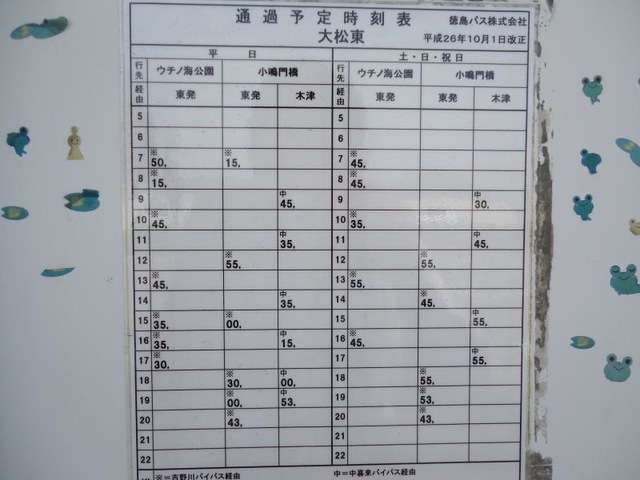 通過予定時刻表
徳島バス株式会社
大松東
平成26年10月1日改正
平日 土・日・祝日
行先 ウチノ海公園 小鳴門橋 行先 ウチノ海公園 小鳴門橋
経由 東発 東発 木津 経由 東発 東発 木津
5 5
6 6
7 ※50, ※15, 7 ※45,
8 ※15, 8 ※45,
9 中45, 9 中30,
10 ※45, 10 ※35,
11 中35, 11 中45,
12 ※55, 12 ※55,
13 ※45, 13 ※55,
14 中35, 14 ※45,
15 ※35, ※00, 15 中55,
16 ※35, 中15, 16 ※45,
17 ※30, 17 中55,
18 ※30, 中00, 18 ※55,
19 ※00, 中53, 19 ※53,
20 ※43, 20 ※43,
21 21
22 22
※=吉野川バイパス経由 中=中喜来バイパス経由